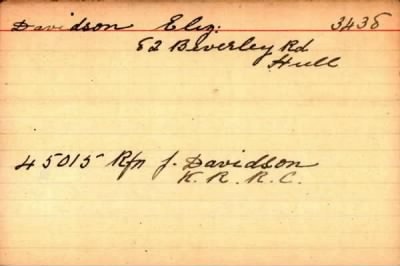 Davidson Eliz: 3438
52 Beverley Rd
Hull
45015 Rfn J. Davidson
K. R. R. C.